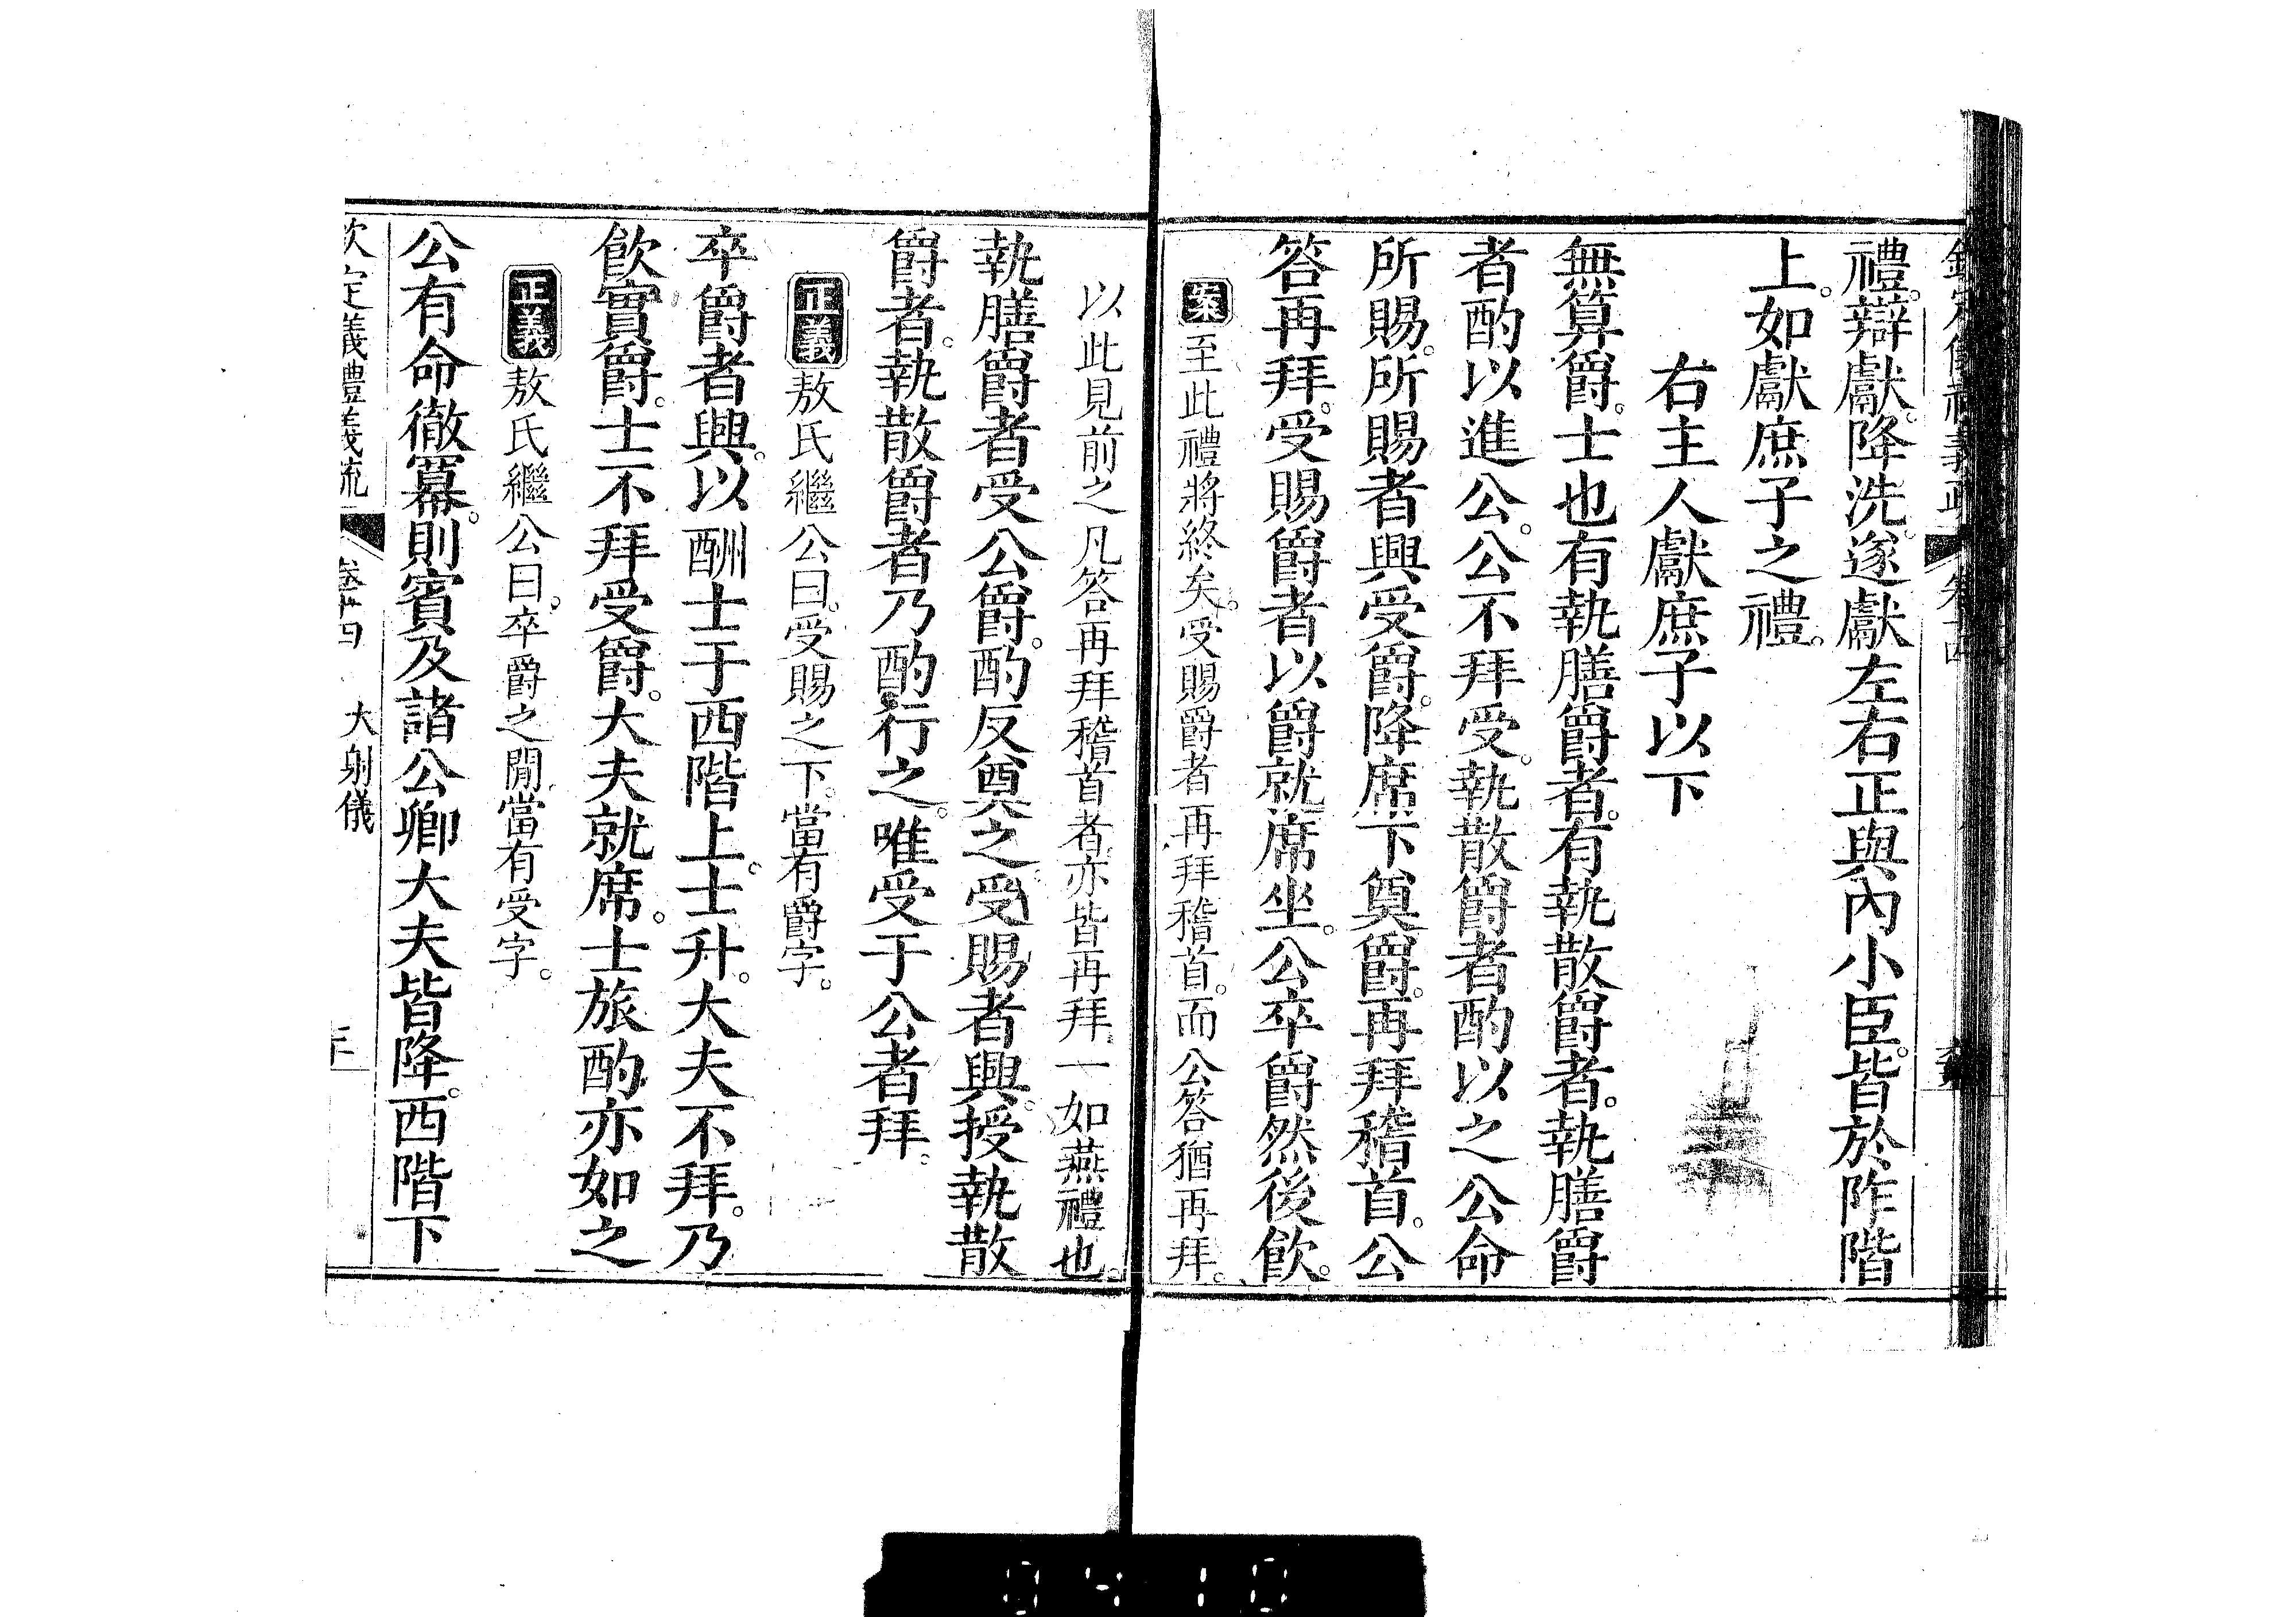 禮。辯獻。降洗。遂獻左右正與內小臣。皆於阼階
上。如獻庶子之禮。
右主人獻庶子以下
無算爵。士也有執膳爵者。有執散爵者。執膳爵
者酌以進公。公不拜受。執散爵者酌以之公命
所賜。所賜者興受爵。降席下奠爵。再拜稽首。公
答再拜。受賜爵者以爵就席坐。公卒爵然後飲。
案至此禮將終矣。受賜爵者再拜稽首。而公答猶再拜。
以此見前之凡答再拜稽首者亦皆再拜一如燕禮也。
執膳爵者受公爵。酌反奠之。受賜者興。授執散
爵者。執散爵者乃酌行之。唯受于公者拜。
正義敖氏繼公曰。受賜之下。當有爵字。
卒爵者興。以酬士于西階上。士升。大夫不拜。乃
飲實爵。士不拜受爵。大夫就席。士旅酌亦如之
正義敖氏繼公曰。卒爵之閒當有受字。
公有命徹冪。則賓及諸公卿大夫皆降。西階下
欽定義禮義疏 卷 四 大射儀